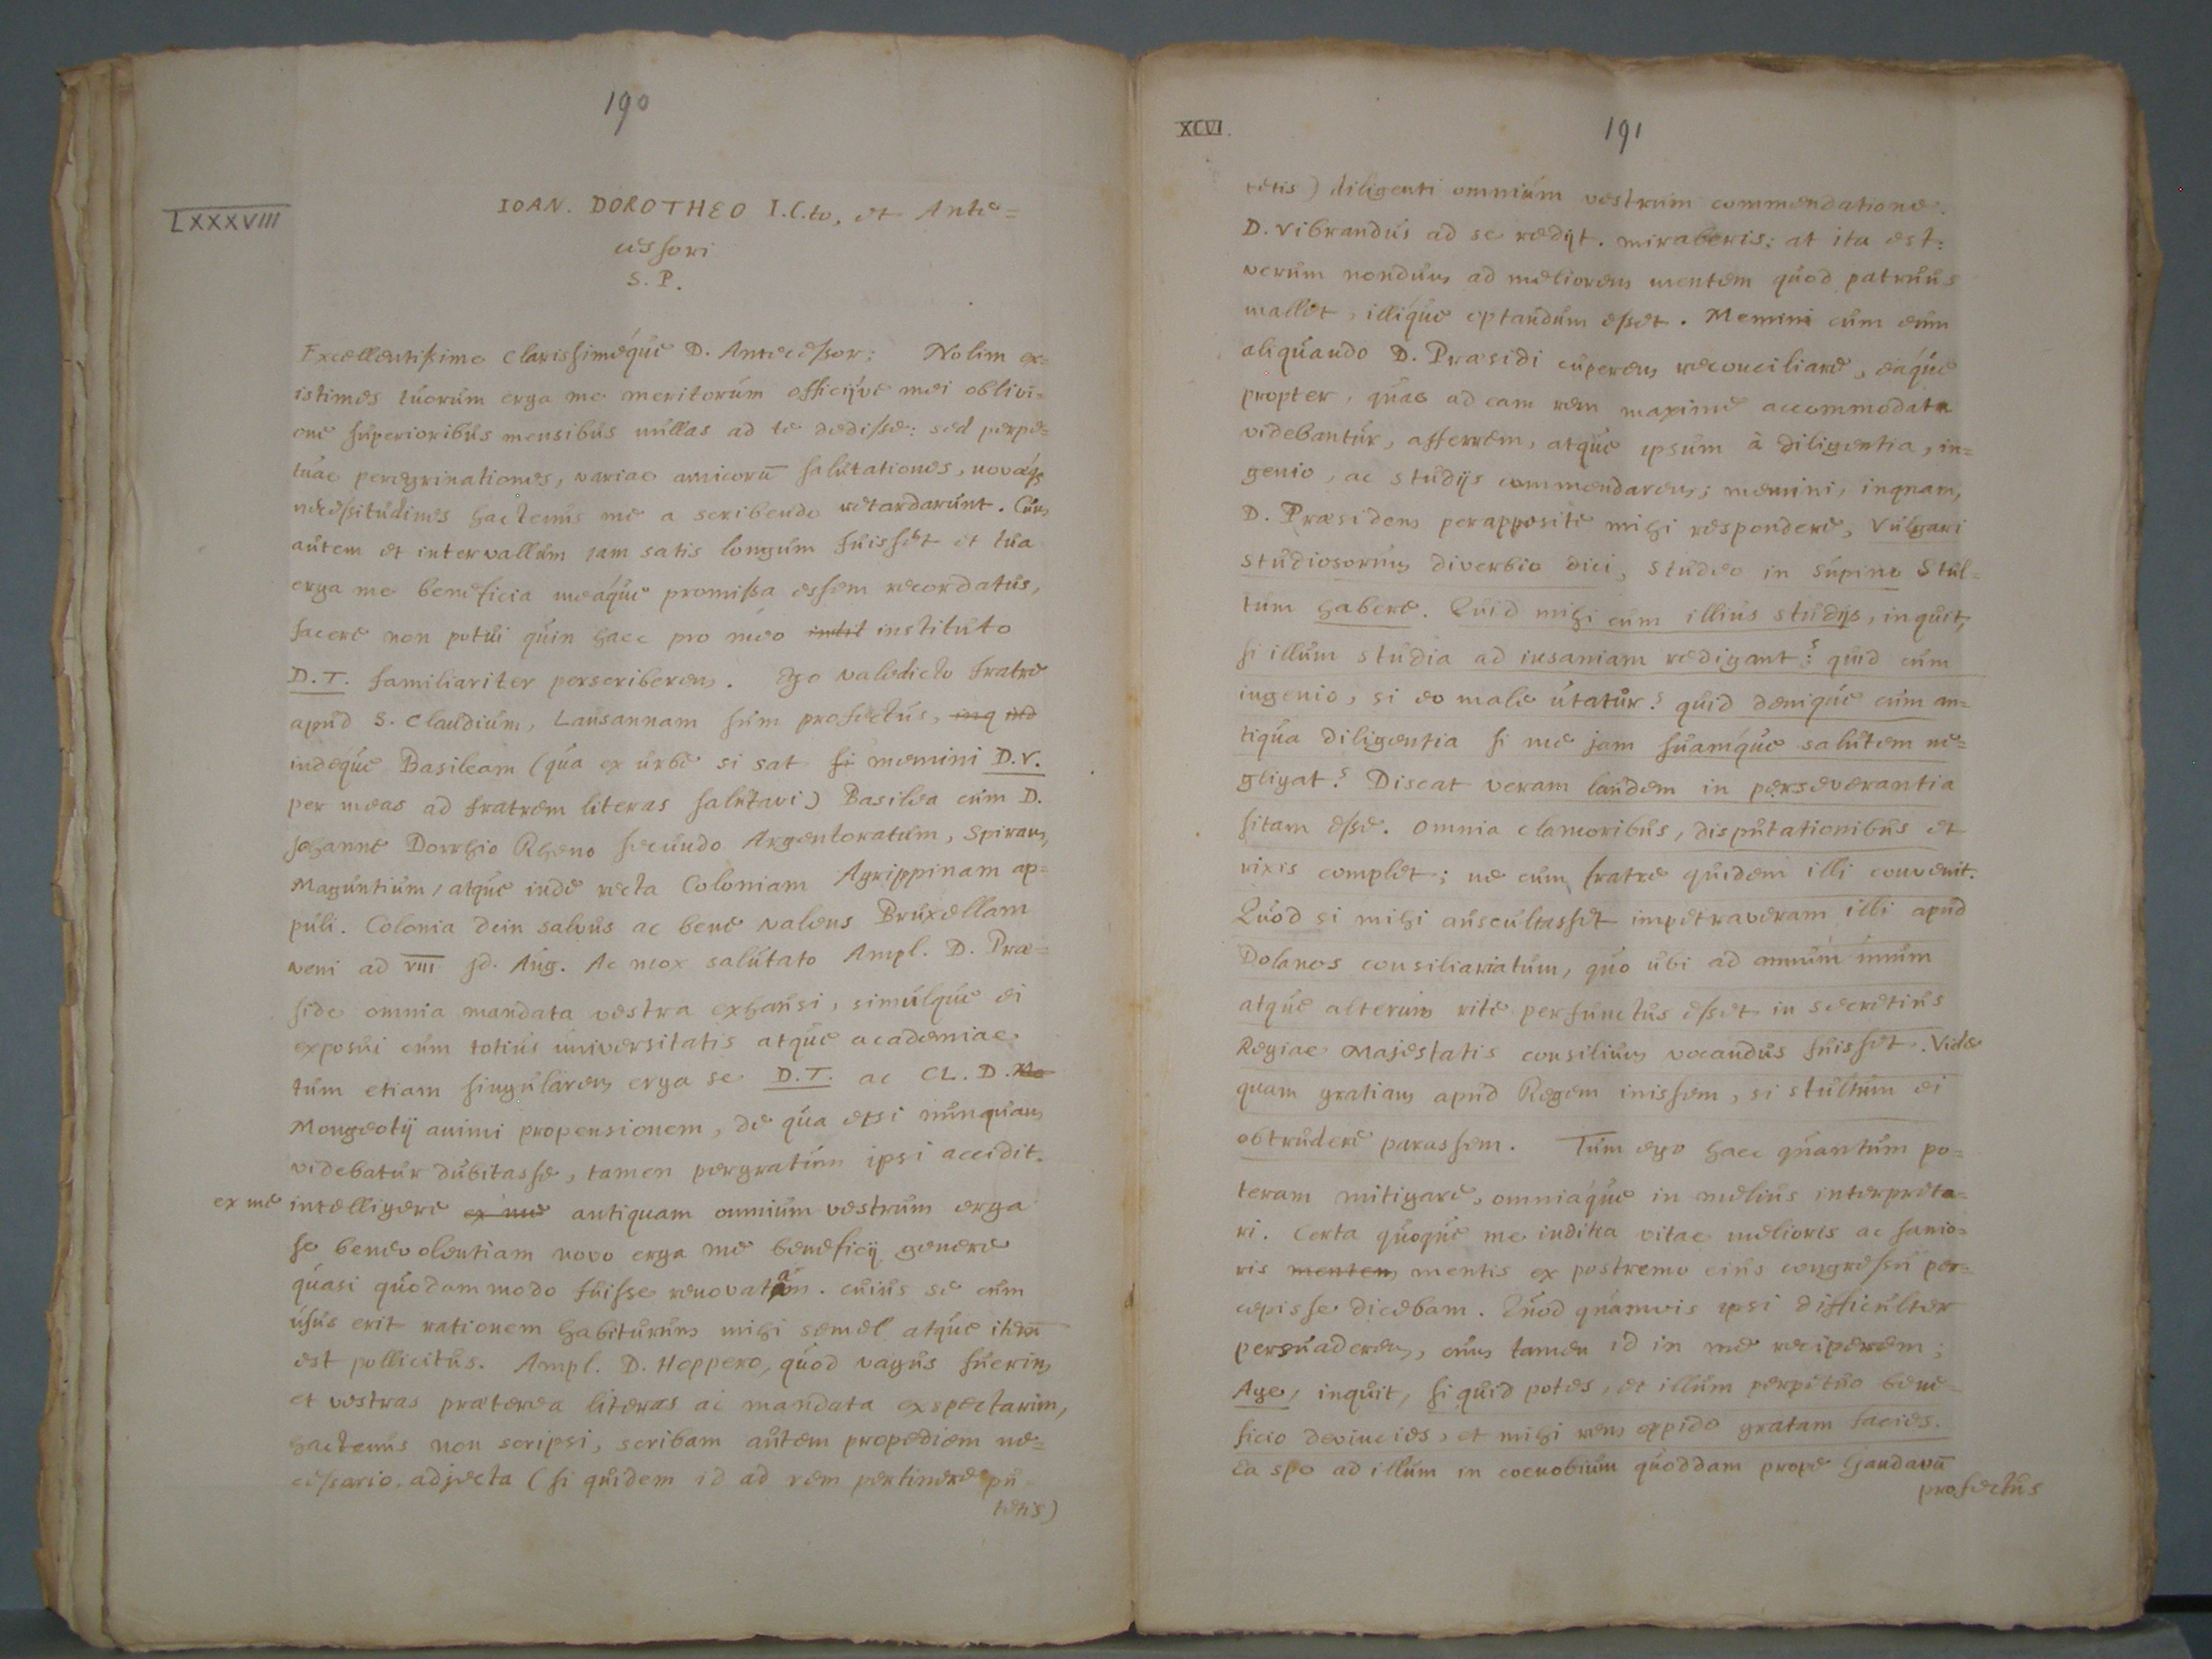 190
LXXXVIII
IOAN. DOROTHEO I.C.to, et Ante=
cessori
S. P.
Excellentissime Clarissimeque D. Antecessor; Nolim ex=
istimes tuorum erga me meritorum officijve mei oblivi=
one superioribus mensibus nullas ad te dedisse: sed perpe=
tuae peregrinationes, variae amicorū salutationes, novaeq3
necessitudines hactenus me a scribendo retardarunt. Cum
autem et intervallum jam satis longum fuisset et tua
erga me beneficia meaque promissa essem recordatus,
facere non potui quin haec pro meo instit instituto
D.T. familiariter perscriberem. Ego valedicto fratre
apud S. Claudium, Lausannam sum profectus, inq ind
indeque Basileam (qua ex urbe si sat si memini D.V.
per meas ad fratrem literas salutavi) Basilea cum D.
Johanne Dorrhio Rheno secundo Argentoratum, Spiram,
Maguntium, atque inde recta Coloniam Agrippinam ap=
puli. Colonia dein salvus ac bene valens Bruxellam
veni ad VIII jd. Aug. Ac mox salutato Ampl. D. Prae=
side omnia mandata vestra exhausi, simulque ei
exposui cum totius universitatis atque academiae
tum etiam singularem erga se D.T. ac CL. D. Mo
Mongeotij animi propensionem, de qua etsi nunquam
videbatur dubitasse, tamen pergratum ipsi accidit.
ex me intelligere ex me antiquam omnium vestrum erga
se benevolentiam novo erga me beneficij genere
quasi quodammodo fuisse renovatam. cuius se cum
usus erit rationem habiturum mihi semel atque iterū
est pollicitus. Ampl. D. Hoppero, quod vagus fuerim
et vestras praeterea literas ac mandata exspectarim,
hactenus non scripsi, scribam autem propediem ne=
cessario, adjecta (si quidem id ad rem pertinere pu=
tetis)
XCVI.
191
tetis) diligenti omnium vestrum commendatione.
D. Vibrandus ad se redijt. miraberis: at ita est:
verum nondum ad meliorem mentem quod patruus
mallet, illique optandum esset. Memini cum eum
aliquando D. Praesidi cuperem reconciliare, eaque
propter, quae ad eam rem maxime accommodata
videbantur, afferrem, atque ipsum à diligentia, in=
genio, ac studijs commendarem; memini, inquam,
D. Praesidem perapposite mihi respondere, Vulgari
studiosorum diverbio dici, studeo in supino Stul=
tum habere. Quid mihi cum illius studijs, inquit,
si illum studia ad insaniam redigant? quid cum
ingenio, si eo male utatur? quid denique cum an=
tiqua diligentia si me jam suamque salutem ne=
gligat? Discat veram laudem in perseverantia
sitam esse. Omnia clamoribus, disputationibus et
rixis complet; ne cum fratre quidem illi convenit.
Quod si mihi auscultasset impetraveram illi apud
Dolanos consiliariatum, quo ubi ad annum unum
atque alterum rite perfunctus esset in secretius
Regiae Majestatis consilium vocandus fuisset. Vide
quam gratiam apud Regem inissem, si stultum ei
obtrudere parassem. Tum ego haec quantum po=
teram mitigare, omniaque in melius interpreta=
ri. Certa quoque me indicia vitae melioris ac sanio=
ris mentem mentis ex postremo eius congressu per=
cepisse dicebam. Quod quamvis ipsi difficulter
persuaderem, cum tamen id in me reciperem;
Age, inquit, si quid potes, et illum perpetuo bene=
ficio devincies, et mihi rem oppido gratam facies.
Ea spe ad illum in coenobium quoddam prope Gandavū
profectus